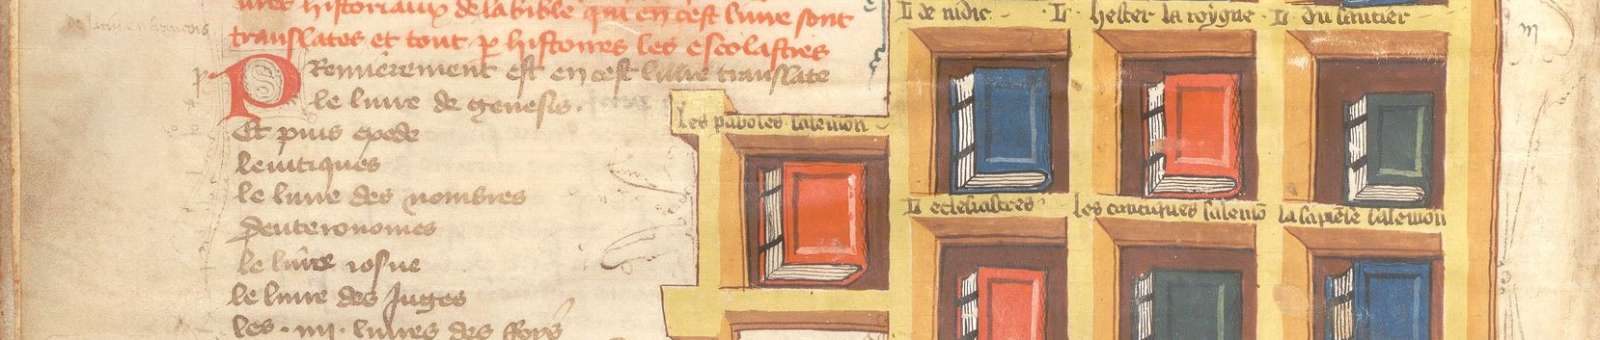 translates et tout p histoires les escolastres
Premierement est en cest livre translate
le livre de genesis.
Et puis exode
levitiques
le livre des nombres
deuteronomes
le livre iosue
le livre des Juges
les .iiii. livres des
L de iudic
L hester la royne
L du sautier
Les paboles salemon
L eclesiastres
Les cantiques salemo
la sapiece salemon